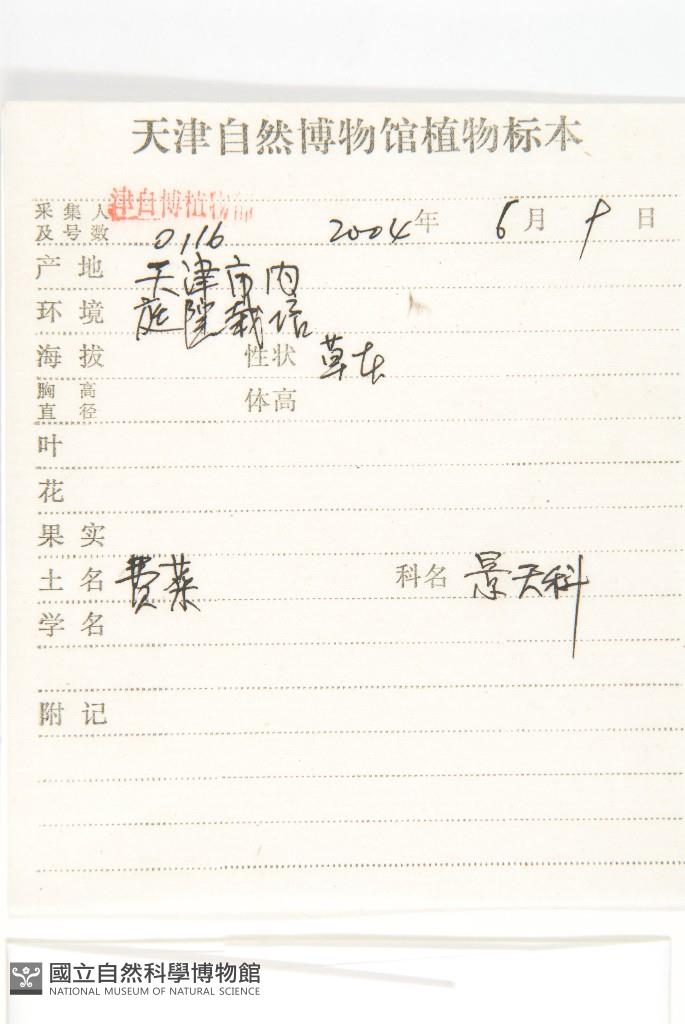 天津自然博物馆植物标本
采集人 津自博植物部
及号数 0116 2004年 6月 9日
产地 天津市内
环境 庭院栽培
海拔 性状 草本
胸高
直径 体高
叶
花
果实
土名 费菜 科名 景天科
学名
附记
國立自然科學博物館
NATIONAL MUSEUM OF NATURAL SCIENCE